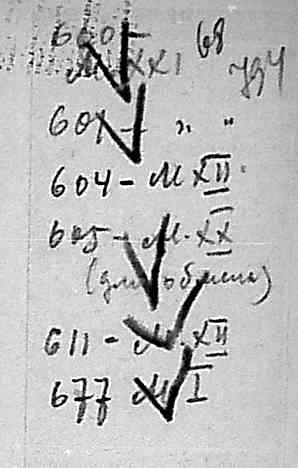 600 - 68
М. XXI 794
601 - " "
604 - М XII
605 - М. XX
(для обмена)
611 - М. XII
677 М I